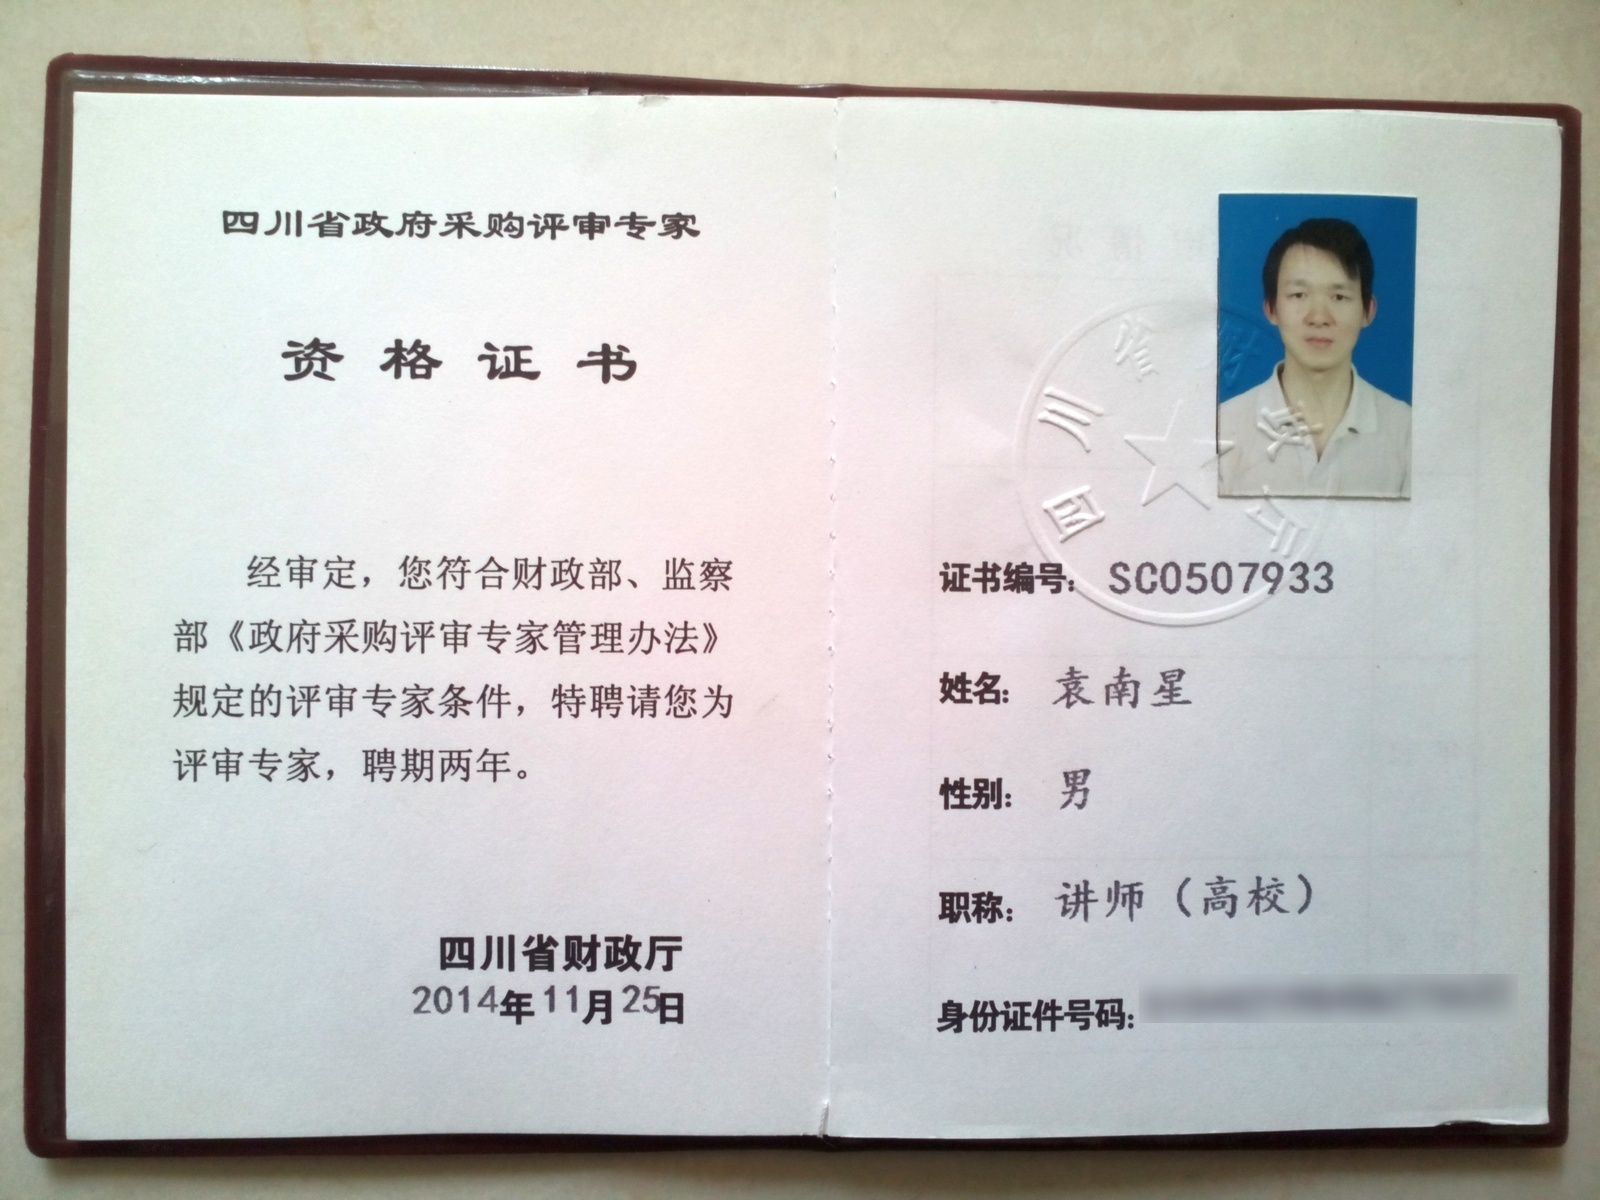 四川省政府采购评审专家
资格证书
经审定，您符合财政部、监察
部《政府采购评审专家管理办法》
规定的评审专家条件，特聘请您为
评审专家，聘期两年。
四川省财政厅
2014年11月25日
四川省财政厅
证书编号：SC0507933
姓名：袁南星
性别：男
职称：讲师（高校）
身份证件号码：